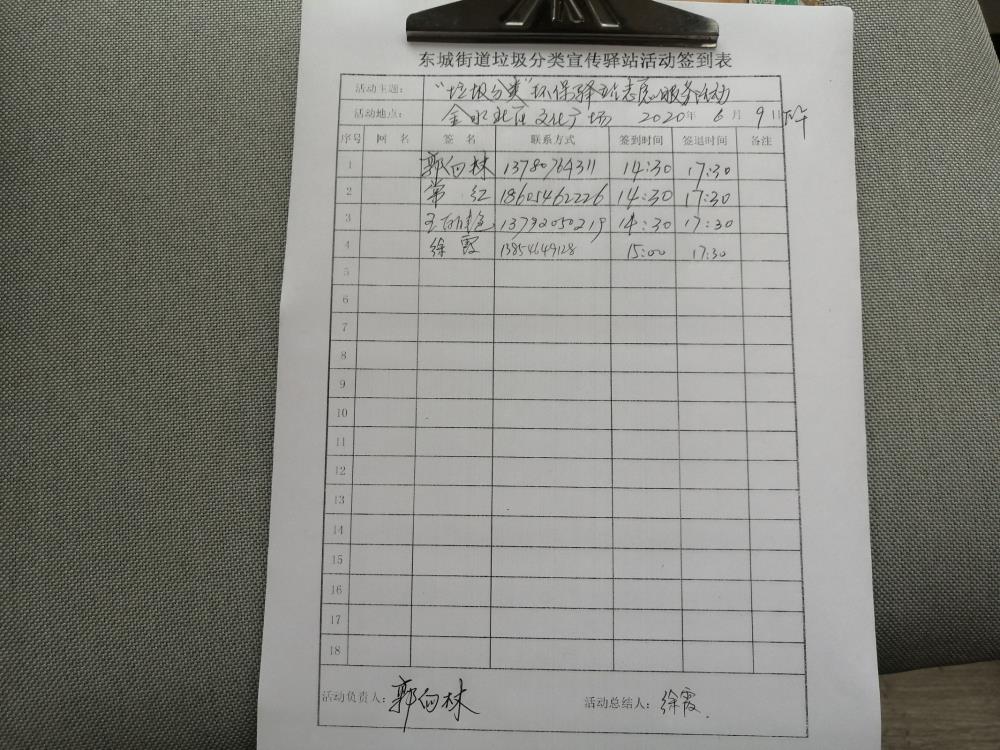 东城街道垃圾分类宣传驿站活动签到表
活动主题: "垃圾分类"环保驿站志愿服务活动
活动地点: 金水社区文化广场 2020年 6月 9日下午
序号 网 名 签 名 联系方式 签到时间 签退时间 备注
1 郭向林 13780764311 14:30 17:30
2 常 红 18605462226 14:30 17:30
3 13792050219 14:30 17:30
4 徐霞 13854649128 15:00 17:30
5
6
7
8
9
10
11
12
13
14
15
16
17
18
活动负责人: 郭向林 活动总结人: 徐霞